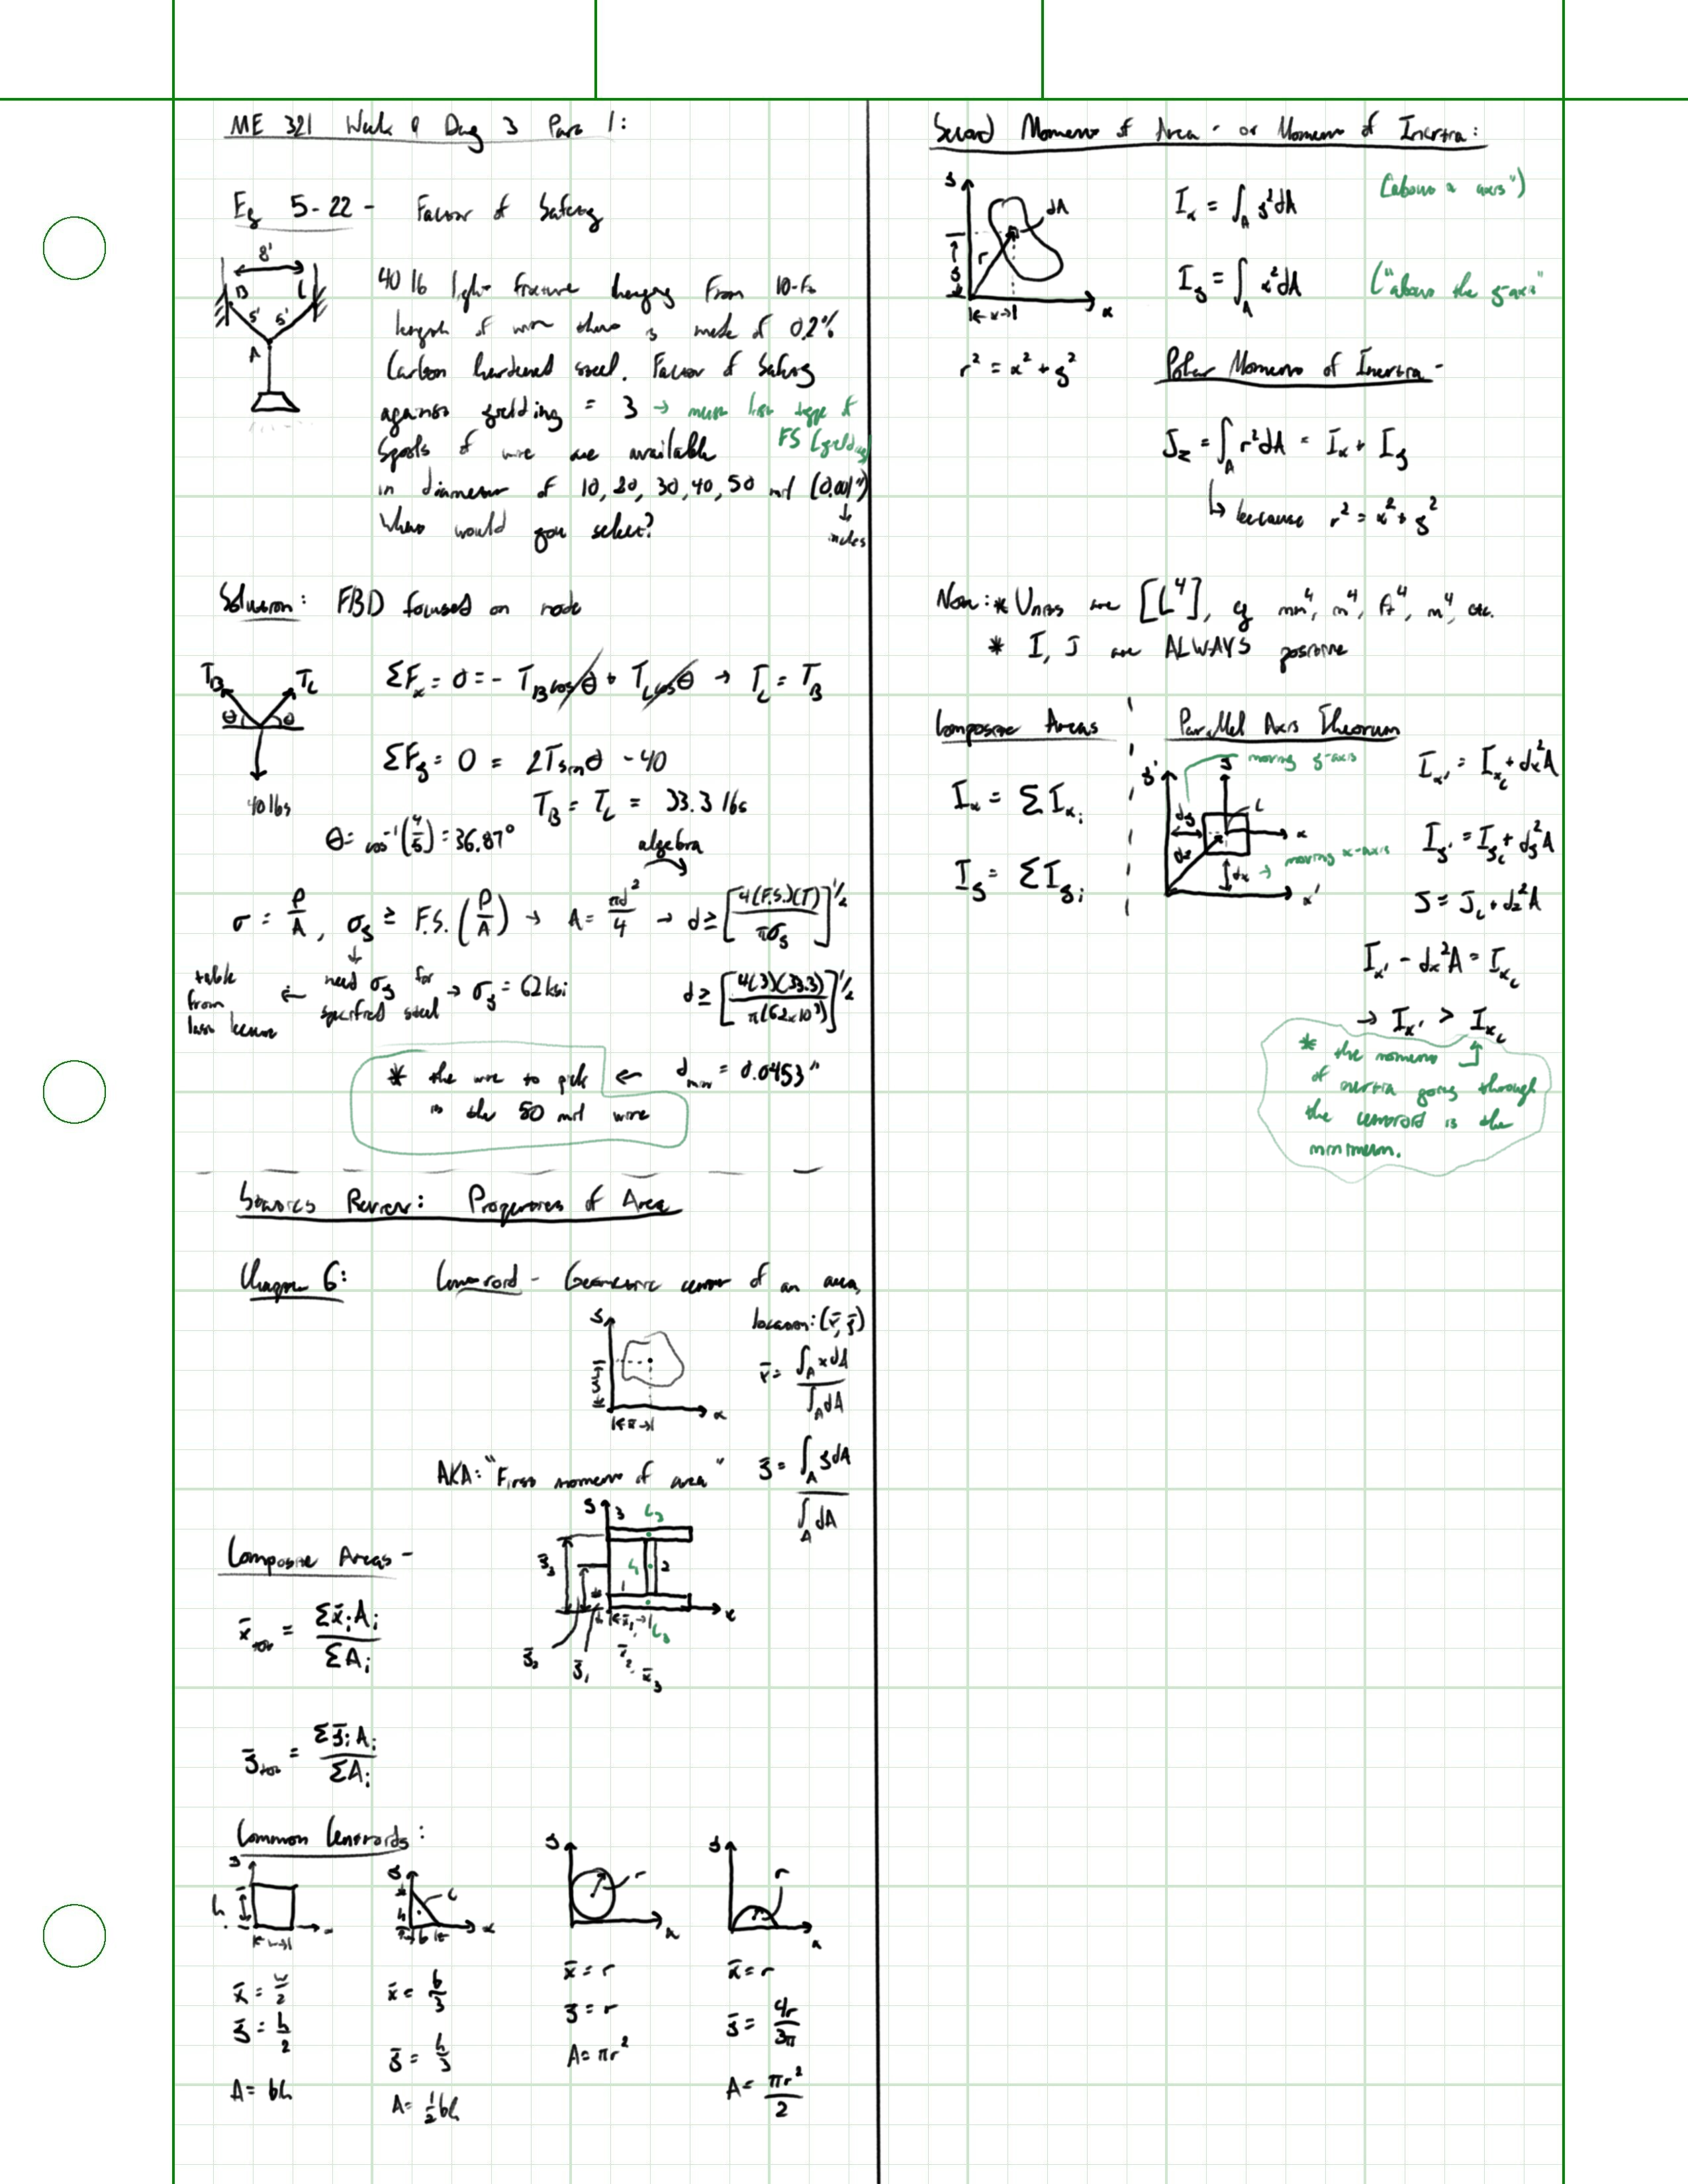 ME 321 Week 9 Day 3 Part 1:
Eg 5-22 - Factor of Safety
8'
B C
5' 5'
A
40 lb light fixture hanging from 10-ft
length of wire that is made of 0.2%
Carbon hardened steel. Factor of Safety
against yielding = 3 → must list type of
FS (yielding)
Spools of wire are available
in diameter of 10, 20, 30, 40, 50 mil (0.001")
↓
inches
What would you select?
Solution: FBD focused on node
T_B T_C
θ θ
40 lbs
ΣF_x = 0 = - T_B cosθ + T_C cosθ → T_C = T_B
ΣF_y = 0 = 2T sinθ - 40
T_B = T_C = 33.3 lbs
θ = cos⁻¹(4/5) = 36.87°
algebra
σ = P/A , σ_y ≥ F.S. (P/A) → A = πd²/4 → d ≥ [4(F.S.)(T)/πσ_y]^1/2
table from last lecture ← need σ_y for specified steel → σ_y = 62 ksi
d ≥ [4(3)(33.3)/π(62x10³)]^1/2
* the wire to pick ← d_min = 0.0453"
is the 50 mil wire
Statics Review: Properties of Area
Chapter 6: Centroid - Geometric center of an area,
location: (x̄, ȳ)
y
x
ȳ
|←x̄→|
x̄ = ∫_A x dA / ∫_A dA
AKA: "First moment of area"
ȳ = ∫_A y dA / ∫_A dA
Composite Areas -
y 3 C_3
ȳ_3 2
1
|←x̄_1→| x
ȳ_2 ȳ_1 x̄_2 x̄_3
x̄_tot = Σx̄_i A_i / ΣA_i
ȳ_tot = Σȳ_i A_i / ΣA_i
Common Centroids:
y h |←w→| x
y C h b x
y r x
y r x
x̄ = w/2
ȳ = h/2
A = bh
x̄ = b/3
ȳ = h/3
A = 1/2 bh
x̄ = r
ȳ = r
A = πr²
x̄ = r
ȳ = 4r/3π
A = πr²/2
Second Moment of Area - or Moment of Inertia:
y dA
r
y
|←x→| x
I_x = ∫_A y² dA (about x axis")
I_y = ∫_A x² dA ("about the y-axis"
r² = x² + y²
Polar Moment of Inertia -
J_z = ∫_A r² dA = I_x + I_y
↳ because r² = x² + y²
Note: * Units are [L⁴], eg mm⁴, m⁴, ft⁴, in⁴, etc.
* I, J are ALWAYS positive
Composite Areas
I_x = ΣI_x_i
I_y = ΣI_y_i
Parallel Axis Theorum
moving y-axis
y' y
dy C
x
dz
dx → moving x-axis
x'
I_x' = I_x_c + dx²A
I_y' = I_y_c + dy²A
J = J_c + dz²A
I_x' - dx²A = I_x_c
→ I_x' > I_x_c
* the moment
of inertia going through
the centroid is the
minimum.